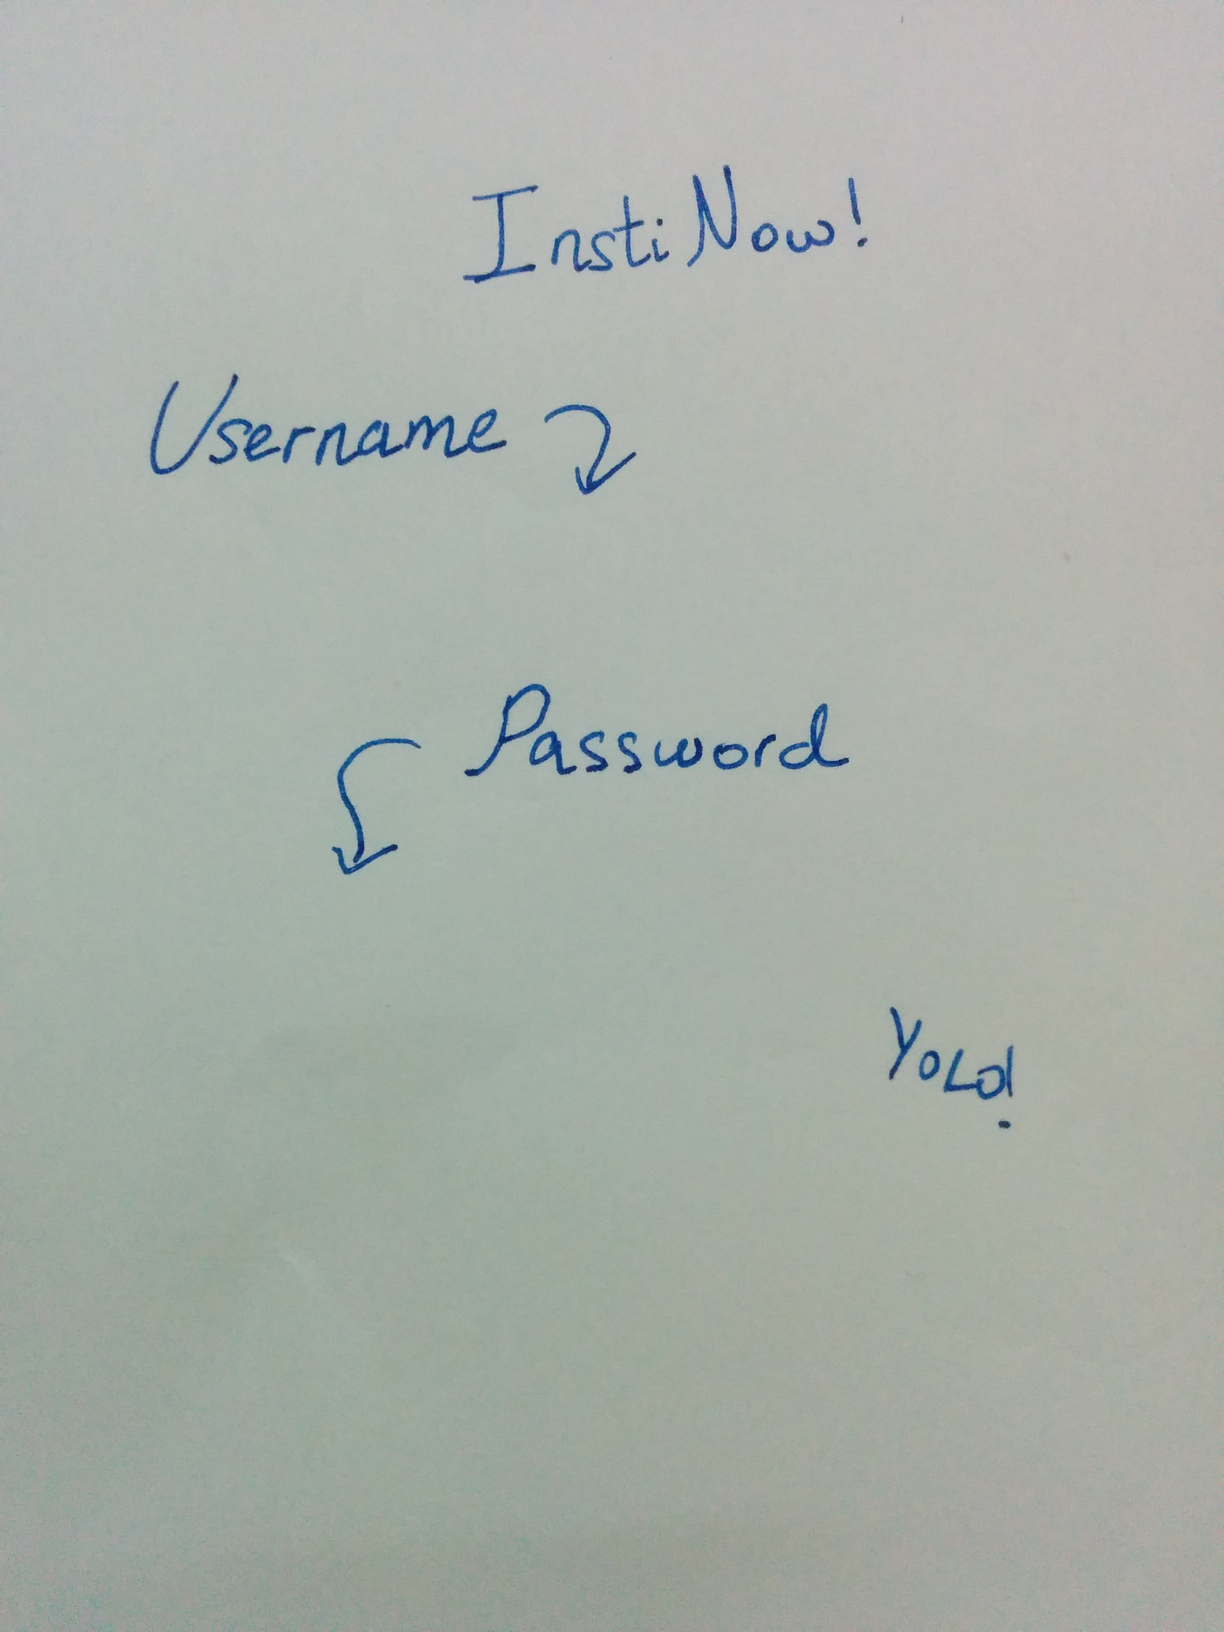 InstiNow!
Username
Password
YoLo!